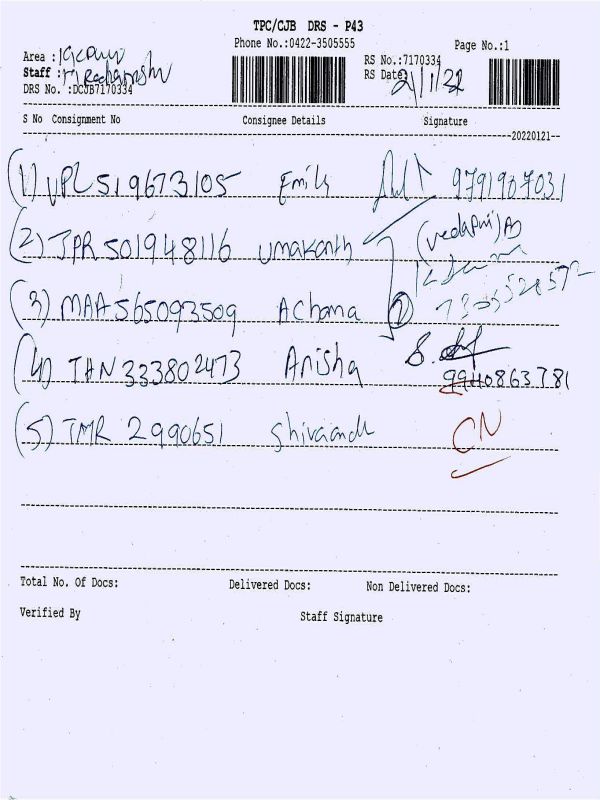 TPC/CJB DRS - P43
Phone No.:0422-3505555
Page No.:1
Area :
RS No.:7170334
Staff :
RS Date: 21/1/22
DRS No. :DCJB7170334
S No Consignment No Consignee Details Signature
20220121
(1) VPL519673105 Emily 9791907031
(2) JPR501948116 Umakanth
(3) MAA565093509 Achana 2
(4) THN333802473 Anisha 9940863781
(5) TMR 2990651 CN
Total No. Of Docs: Delivered Docs: Non Delivered Docs:
Verified By Staff Signature